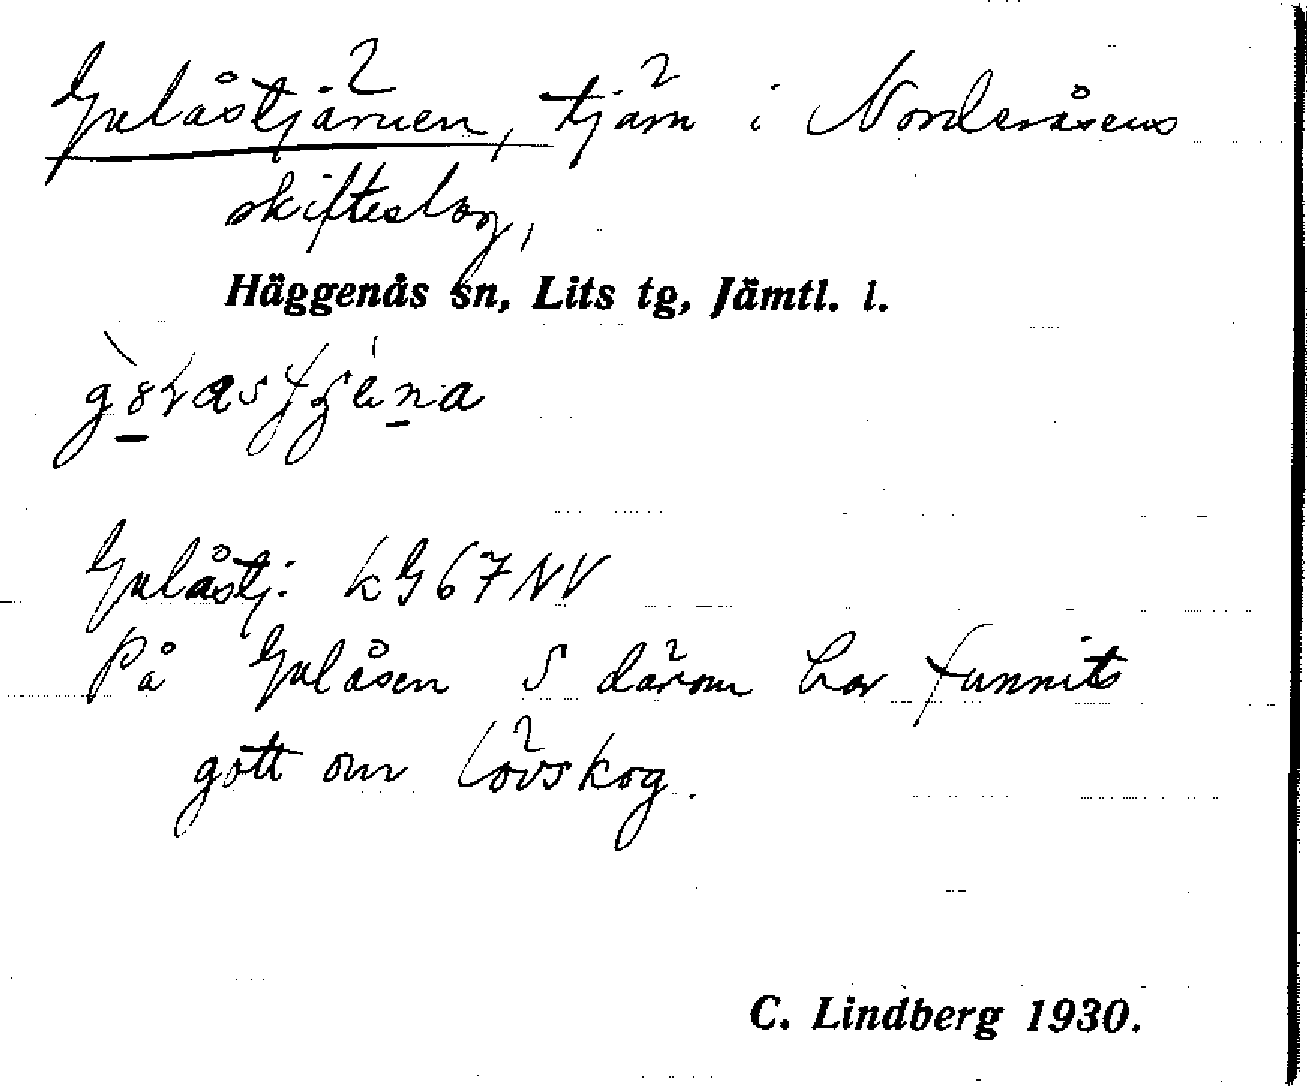 Gulåstjärnen, tjärn i Norderåsens
skifteslag,
Häggenås sn, Lits tg, Jämtl. l.
Gulåstj. kG67NV
På Gulåsen S därom har funnits
gott om lövskog.
C. Lindberg 1930.